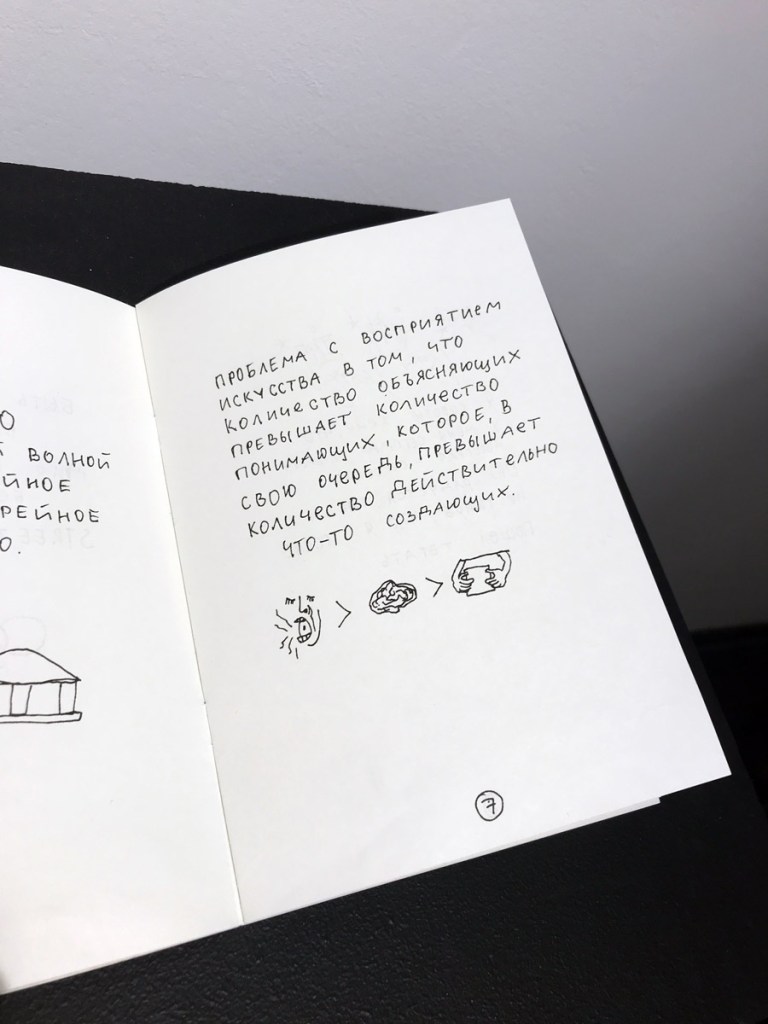 О
Й ВОЛНОЙ
ЙНОЕ
РЕЙНОЕ
О.
ПРОБЛЕМА С ВОСПРИЯТИЕМ
ИСКУССТВА В ТОМ, ЧТО
КОЛИЧЕСТВО ОБЪЯСНЯЮЩИХ
ПРЕВЫШАЕТ КОЛИЧЕСТВО
ПОНИМАЮЩИХ, КОТОРОЕ, В
СВОЮ ОЧЕРЕДЬ, ПРЕВЫШАЕТ
КОЛИЧЕСТВО ДЕЙСТВИТЕЛЬНО
ЧТО-ТО СОЗДАЮЩИХ.
> >
7